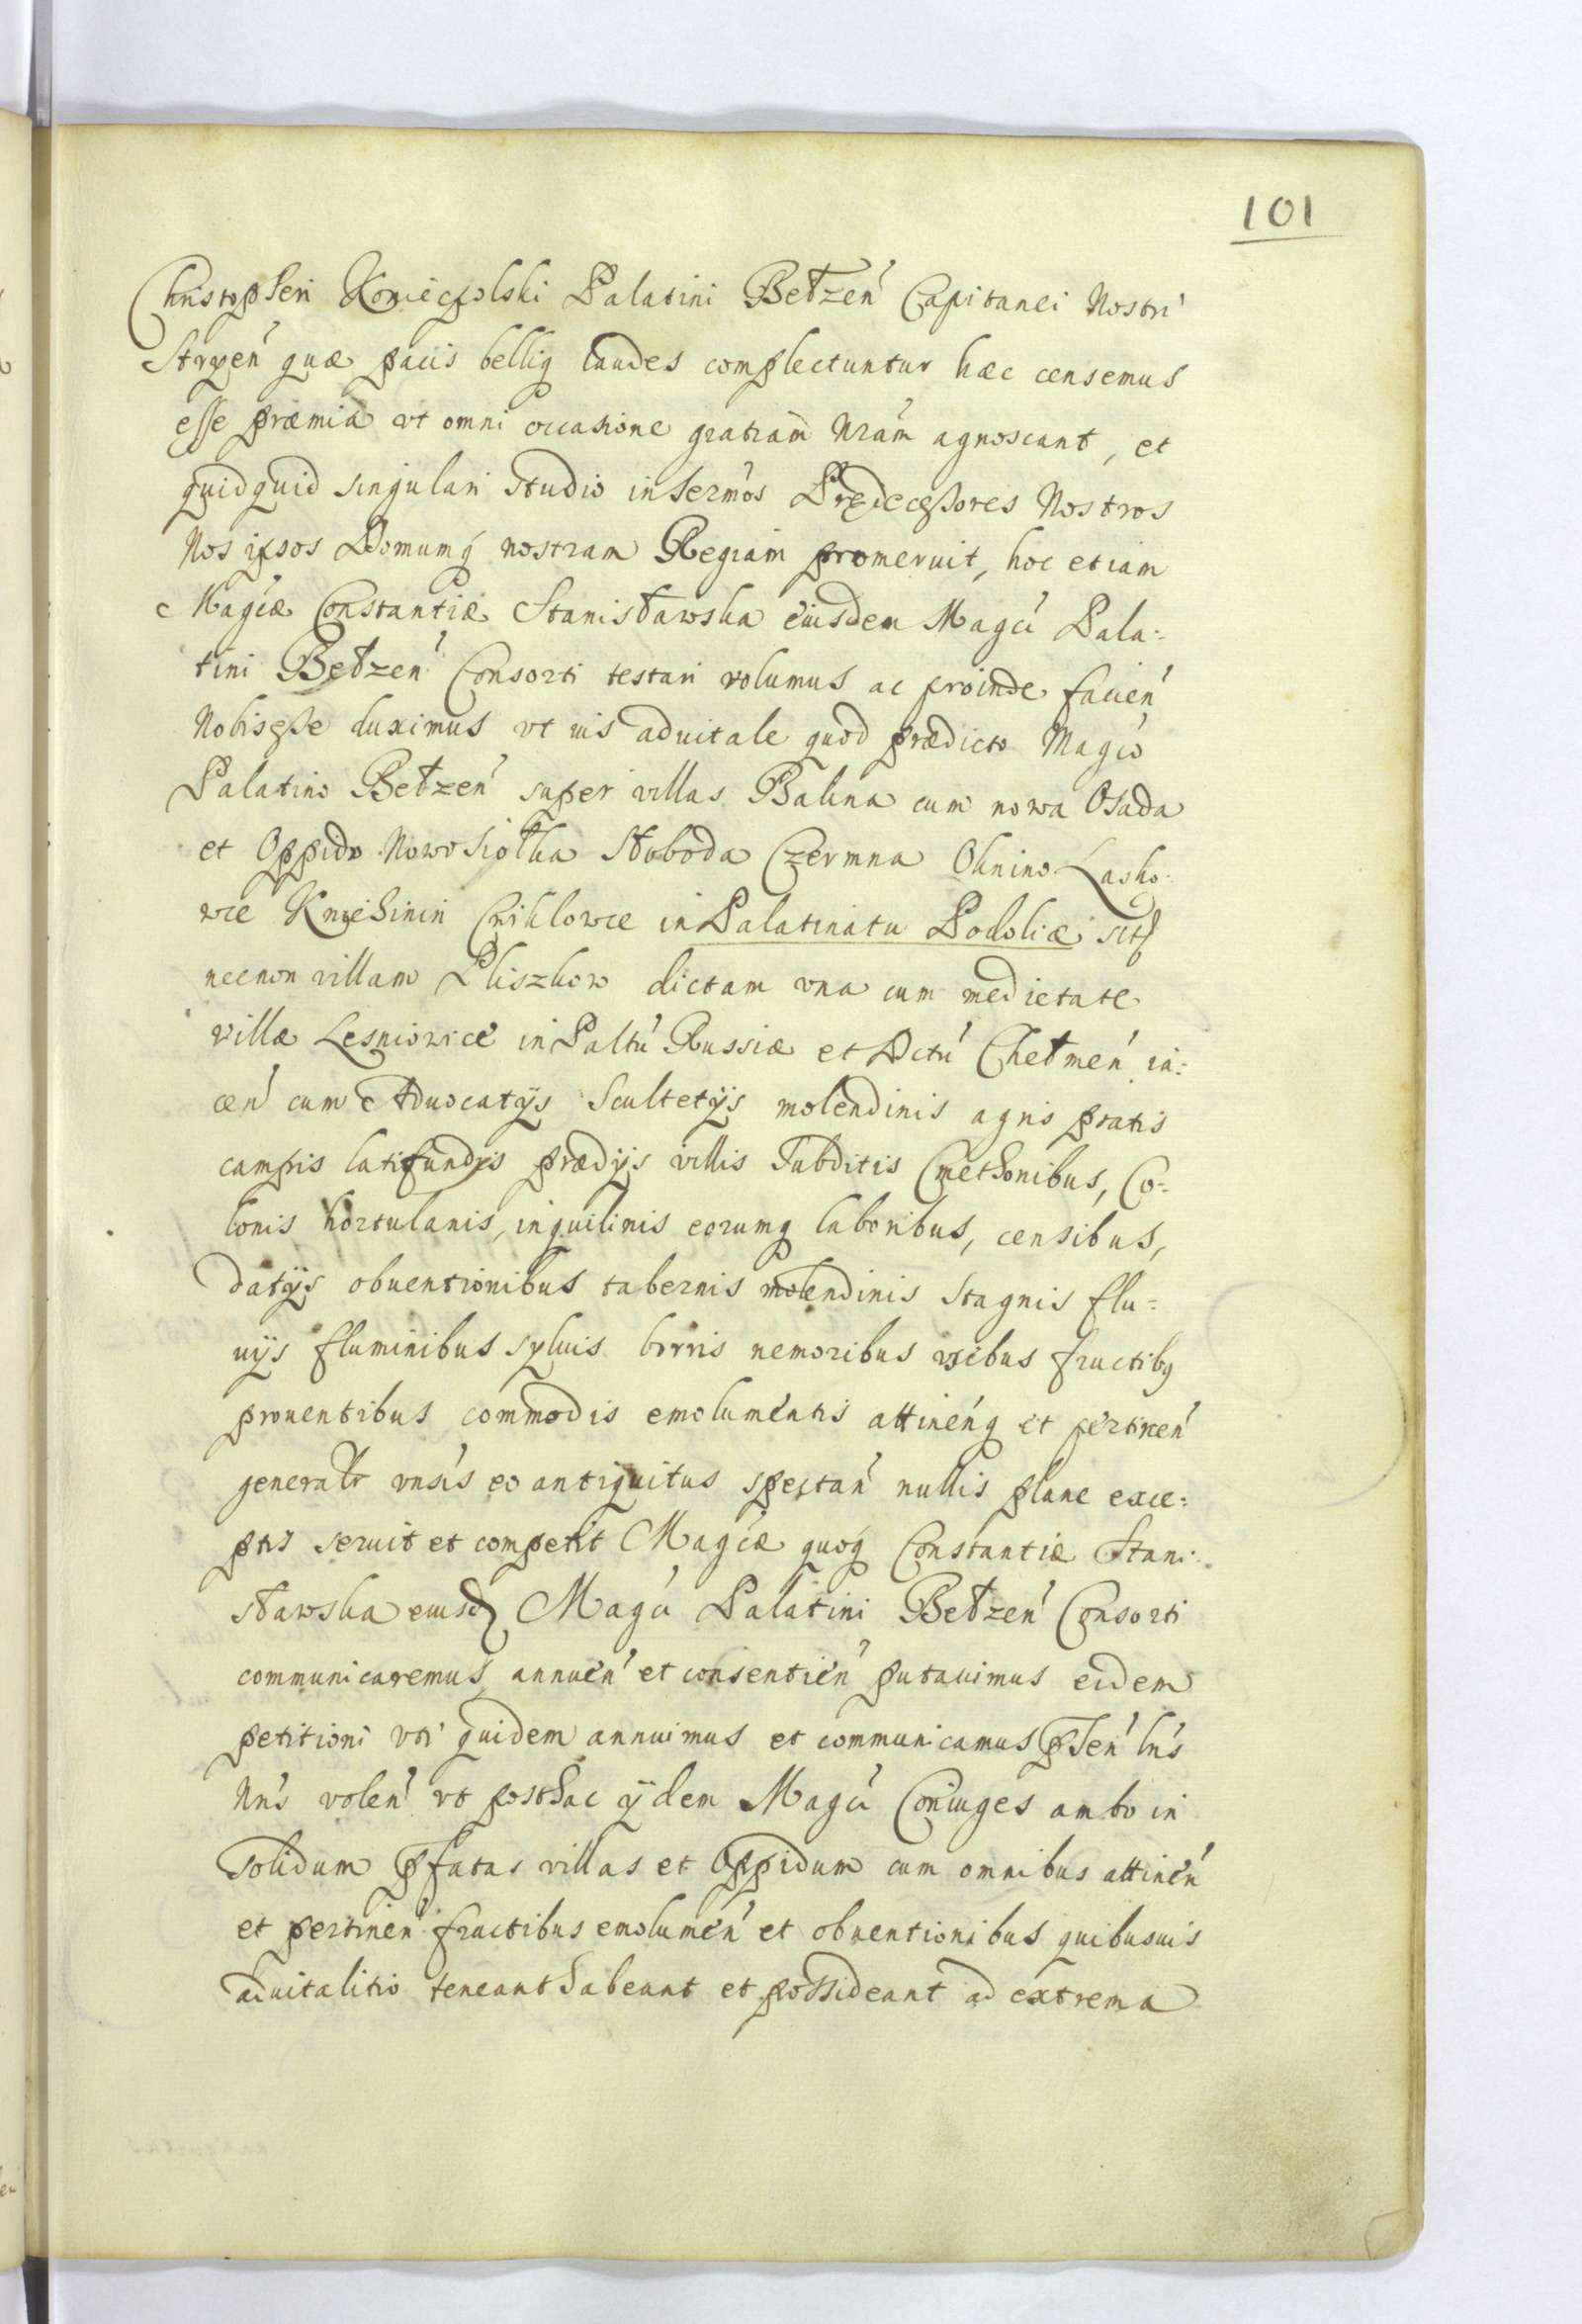 101
Christopheri Koniecpolski Palatini Bełzen̄ Capitanei Nostri
Stryen̄ quæ pacis belliq laudes complectuntur hæc censemus
esse præmia vt omni occasione gratiam Nram̄ agnoscant, et
quidquid singulari studio in Sermōs Prędecessores Nostros
Nos ipsos Domumq̄ nostram Regiam promeruit, hoc etiam
Magcæ Constantiæ Stanisławska eiusdem Magci Pala:
tini Bełzen̄ Consorti testari volumus ac proinde facien̄
Nobis esse duximus vt ius aduitale quod prædicto Magco
Palatino Bełzen̄ super villas Balina cum nowa Osada
et Oppido Nowosiołka Słoboda Czermna Ohnino Lasko:
wce Kniehinin Cziklowce in Palatinatu Podoliæ sit
necnon villam Pliszkow dictam vna cum medietate
villæ Lesniowice in Paltu Russiæ et Dctu Chełmen̄ ia:
cen̄ cum Aduocatijs Scultetijs molendinis agris pratis
campis latifundijs prædijs villis Subditis Cmethonibus, Co=
lonis hortulanis, inquilinis eorumq laboribus, censibus,
datijs obuentionibus tabernis molendinis Stagnis flu=
uijs fluminibus syluis borris nemoribus vsibus fructibq
prouentibus commodis emolumentis attinen̄q et pertinen̄
generalr vnsis eo antiquitus spectan̄ nullis plane exce:
ptis seruit et competit Magcæ quoq̄ Constantiæ Stani:
sławska eiusd Magci Palatini Bełzen̄ Consorti
communicaremus annuen̄ et consentien̄ putauimus eidem
petitioni vti quidem annuimus et communicamus pñsen̄ lr̄is
Nr̄is volen̄ vt posthac ijdem Magci Coniuges ambo in
solidum p̄fatas villas et Oppidum cum omnibus attinen̄
et pertinen̄ fructibus emolumen̄ et obuentionibus quibusuis
aduitalitio teneant habeant et possideant ad extrema